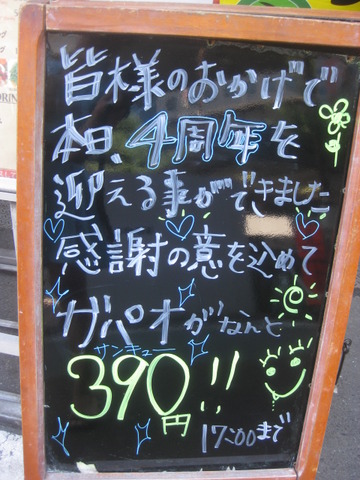 皆様のおかげで
本日、4周年を
迎える事ができました
感謝の意を込めて
ガパオがなんと
サンキュー
390円!!
17:00まで